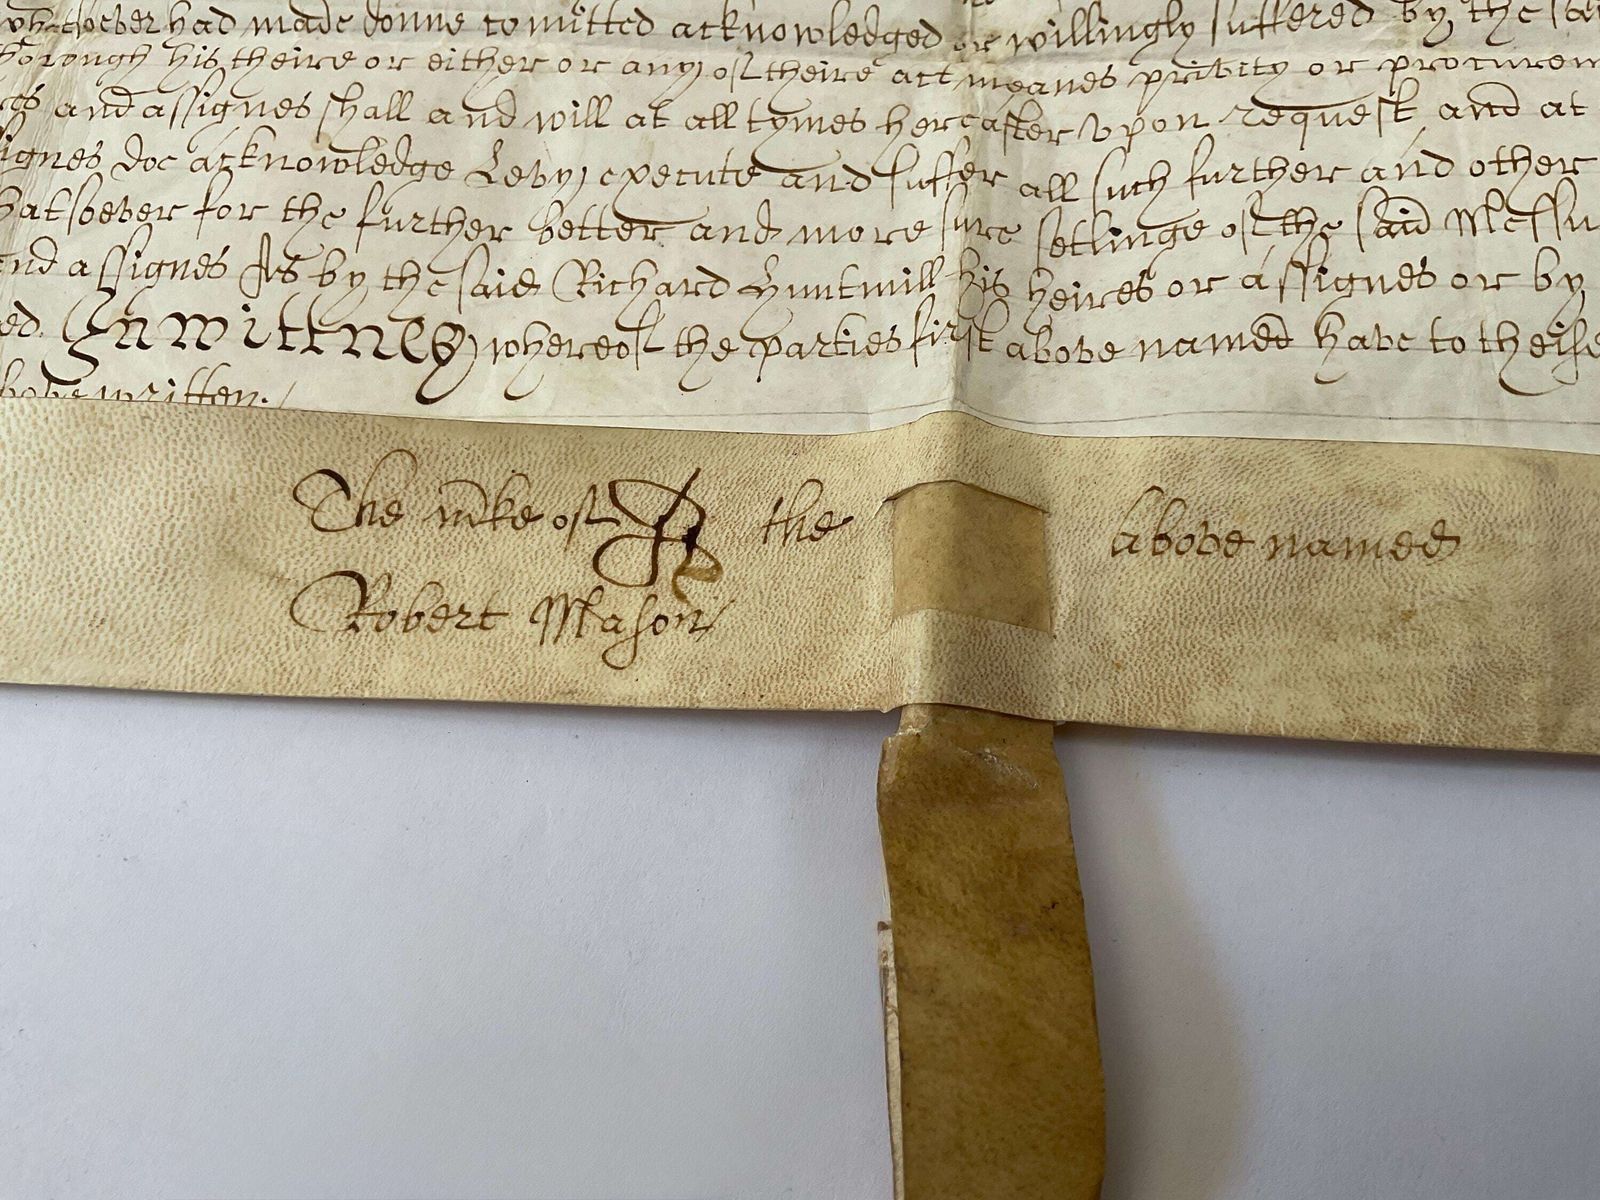 whatsoever had made donne comitted acknowledged or willingly suffered by the sai
thorough his theire or either or any of theire act meanes privity or procurem
res and assignes shall and will at all tymes hereafter vpon request and at
signes doe acknowledge Levy execute and suffer all such further and other
hatsoever for the further better and more sure setlinge of the said Messu
and assignes As by the said Richard Huntmill his heires or assignes or by
ed. In wittnes whereof the parties first above named have to theise
bove written.
The mke of R the above named
Robert Mason